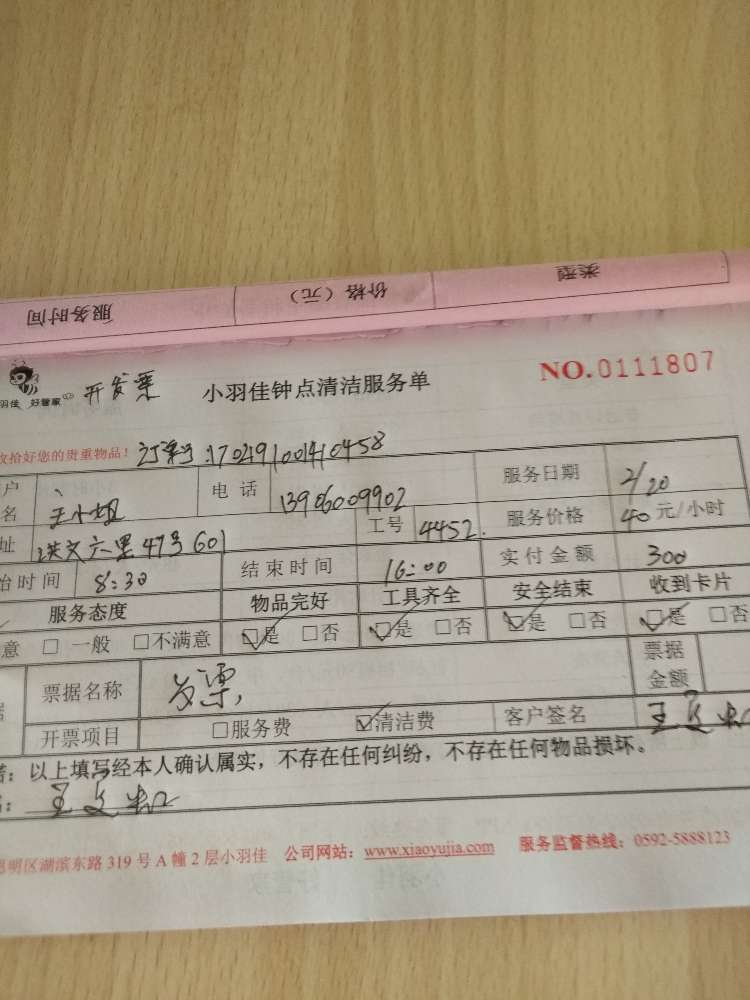 服务时间 价格（元） 类型
羽佳 好管家 开发票 小羽佳钟点清洁服务单 NO.0111807
收拾好您的贵重物品！ 订单号:170291001410458
户名 王小姐 电话 13906009902 服务日期 2/20
址 洪文六里47号601 工号 4452. 服务价格 40元/小时
始时间 8:30 结束时间 16:00 实付金额 300
服务态度 物品完好 工具齐全 安全结束 收到卡片
意 □一般 □不满意 ☑是 □否 ☑是 □否 ☑是 □否 ☑是 □否
票据名称 发票, 票据金额
开票项目 □服务费 ☑清洁费 客户签名 王
：以上填写经本人确认属实，不存在任何纠纷，不存在任何物品损坏。
：王
思明区湖滨东路319号A幢2层小羽佳 公司网站：www.xiaoyujia.com 服务监督热线：0592-5888123